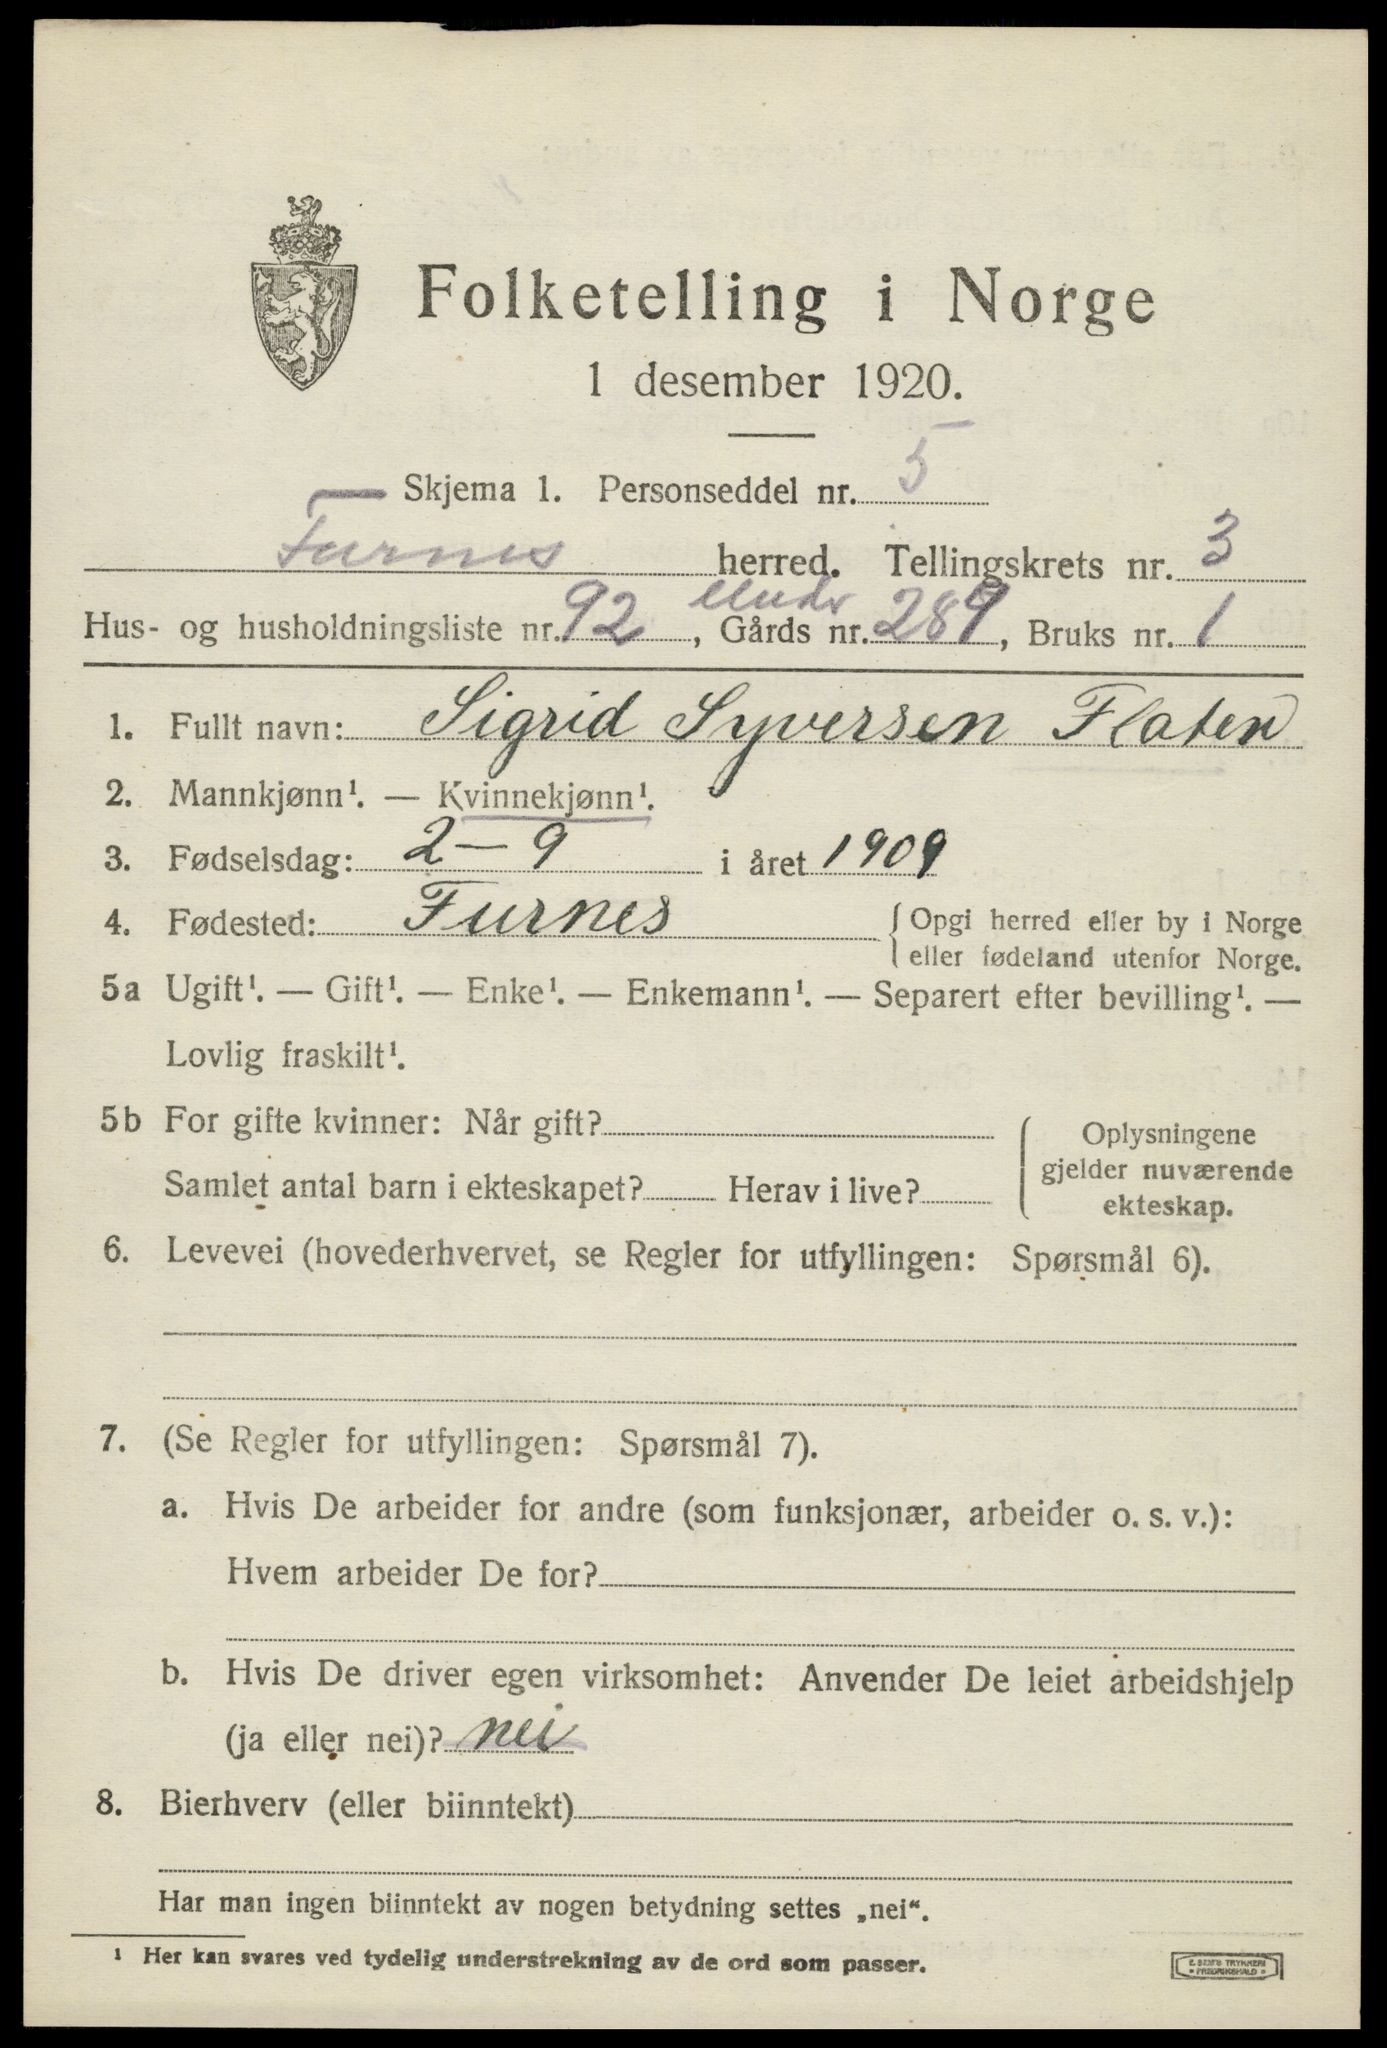 Folketelling i Norge
1 desember 1920.
Skjema 1. Personseddel nr. 5
Furnes herred. Tellingskrets nr. 3
Hus- og husholdningsliste nr. 92, Gårds nr. under 289, Bruks nr. 1
1. Fullt navn: Sigrid Syversen Flaten
2. Mannkjønn¹. — Kvinnekjønn¹.
3. Fødselsdag: 2 — 9 i året 1909
4. Fødested: Furnes { Opgi herred eller by i Norge
eller fødeland utenfor Norge.
5a Ugift¹. — Gift¹. — Enke¹. — Enkemann¹. — Separert efter bevilling¹. —
Lovlig fraskilt¹.
5b For gifte kvinner: Når gift?
Samlet antal barn i ekteskapet? Herav i live?
Oplysningene
gjelder nuværende
ekteskap.
6. Levevei (hovederhvervet, se Regler for utfyllingen: Spørsmål 6).
7. (Se Regler for utfyllingen: Spørsmål 7).
a. Hvis De arbeider for andre (som funksjonær, arbeider o. s. v.):
Hvem arbeider De for?
b. Hvis De driver egen virksomhet: Anvender De leiet arbeidshjelp
(ja eller nei)? nei
8. Bierhverv (eller biinntekt)
Har man ingen biinntekt av nogen betydning settes „nei“.
¹ Her kan svares ved tydelig understrekning av de ord som passer.
E. SEM'S TRYKKERI
FREDRIKSHALD